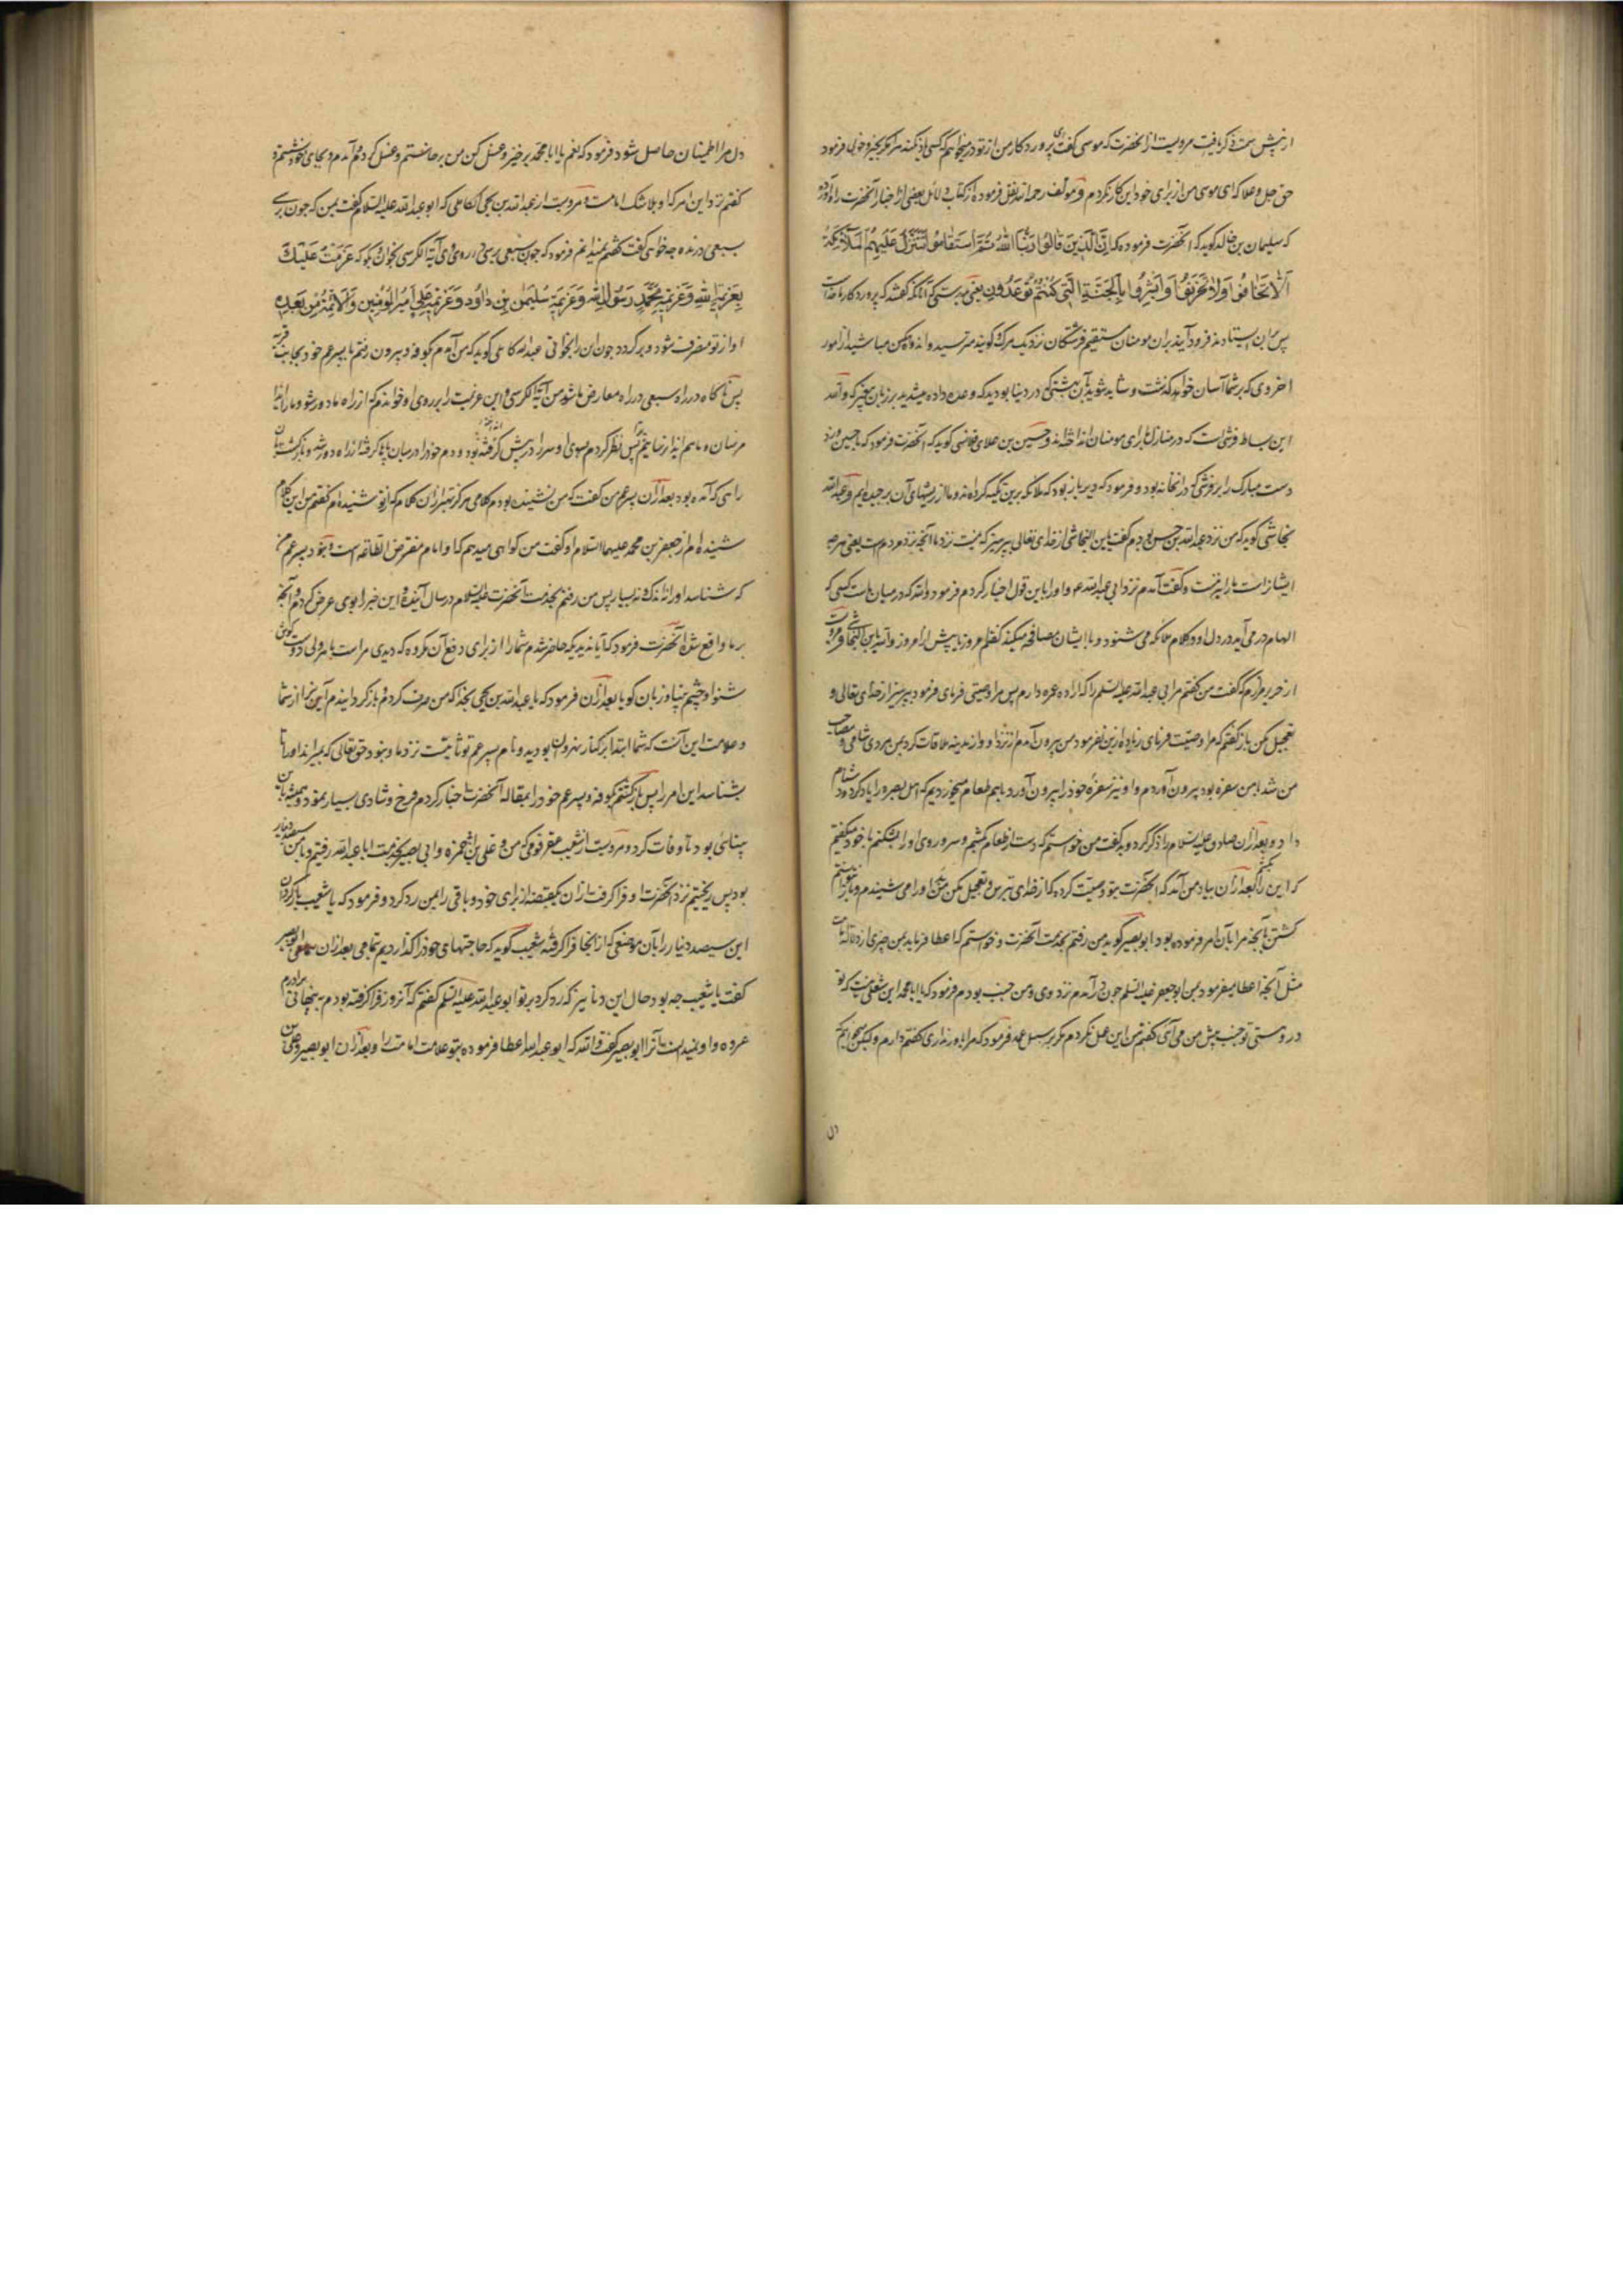 ازین پیش سمت ذکر یافت مرویست از آنحضرت که موسی گفت ای پرورد کار من از تو درمیخواهم که کسی مرا ذکر نکند مکر بخیر و خوبی فرمود
حق جل وعلا که ای موسی من از برای خود این کار نکردم و مولف رحمه الله نقل فرموده از کتاب دلائل بعضی از اخبار آنحضرت را آورده
که سلیمان بن خالد کوید که آنحضرت فرموده که اِنَّ الَّذِینَ قَالُوا رَبُّنَا اللهُ ثُمَّ اسْتَقَامُوا تَتَنَزَّلُ عَلَیْهِمُ الْمَلَائِکَةُ
اَلَّا تَخَافُوا وَلَا تَحْزَنُوا وَاَبْشِرُوا بِالْجَنَّةِ الَّتِی کُنْتُمْ تُوعَدُونَ یعنی بدرستی که آنانکه کفتند که پرورد کار ما خداست
پس بران ایستادند فرود آیند بران مومنان مستقیم فرشتکان نزدیک مرک و کویند مترسید و اندوهکین مباشید از امور
اخروی که بر شما آسان خواهد کذشت و شاد شوید بآن بهشتی که در دنیا بودید که وعده داده میشدید بر زبان پیغمبر که والله
این بساط فرشی است که در منازل ما برای مومنان انداخته اند و حسین بن علای قلانسی کوید که آنحضرت فرمود که یا حسین و زد
دست مبارک را بر فرشی که در آن خانه بود و فرمود که دیر باز بود که ملائکه برین تکیه کرده اند و ما از ریشهای آن برچیده ایم و عبد الله
نجاشی کوید که من نزد عبد الله بن حسن بودم کفت یا بن النجاشی از خدای تعالی بپرهیز که نیست نزد ما آنچه نزد مردمست یعنی هر چه
ایشانراست ما را نیز نیست و کفت آمدم نزد ابی عبد الله و او را باین قول اخبار کردم فرمود والله که در میان ما هست کسی که
الهام در می آید در دل او و کلام ملائکه می شنود و با ایشان مصافحه میکند کفتم امروز یا پیش از امروز والله یا بن النجاشی و مرویست
از جریر مرازم که گفت من کفتم مر ابی عبد الله علیه السلم را که اراده عمره دارم پس مرا وصیتی فرمای فرمود بپرهیز از خدای تعالی و
تعجیل مکن باز کفتم که مرا وصیت فرمای زیاده ازین نفرمود من بیرون آمدم از نزد او و از مدینه ملاقات کرد بمن مردی شامی و مصاحب
من شد با من سفره بود بیرون آوردم و او نیز سفره خود را بیرون آورد با هم طعام میخوردیم که اهل بصره را یاد کرد و دشنام
داد و بعد از آن صادق علیه السلام را ذکر کرد و بد کفت من خواستم که دست از طعام بکشم و سر و روی او را بشکنم با خود میکفتم
که این را بکشم بعد از آن بیاد من آمد که آنحضرت بتو وصیت کرده که از خدای بترس و تعجیل مکن من سخن او را می شنیدم و
کشتن بآنچه مرا بآن امر فرموده بود ابو بصیر کوید من رفتم بخدمت آنحضرت و خواستم که اعطا فرماید بمن چیزی از دلالة امامت
مثل آنچه اعطا میفرمود بمن ابو جعفر علیه السلم چون در آمدم نزد وی و من جنب بودم فرمود که یا ابا محمد این شغلی نیست که تو
در وستی تو جنب پیش من می آی کفتم من این عمل نکردم مکر بر سبیل عمد فرمود که مرا باور نداری کفتم دارم ولیکن میخواهم که
دل
دل مرا اطمینان حاصل شود فرمود که نعم یا ابا محمد برخیز و غسل کن من برخاستم و غسل کردم و آمدم و بجای خود نشستم و
کفتم نزد این امر که او بلا شک امامست و مرویست از عبد الله بن یحیی الکاهلی که ابو عبد الله علیه السلام کفت بمن که چون برسی
بسبعی درنده چه خواهی کفت کفتم نمیدانم فرمود که چون بسبعی برسی در روی وی آیة الکرسی بخوان و بکو که عَزَمْتُ عَلَیْکَ
بِعَزِیمَةِ اللهِ وَعَزِیمَةِ مُحَمَّدٍ رَسُولِ اللهِ وَعَزِیمَةِ سُلَیْمٰنَ بْنِ دَاوُدَ وَعَزِیمَةِ عَلِیٍّ اَمِیرِ الْمُؤْمِنِینَ وَالْاَئِمَّةِ مِنْ بَعْدِهِ
او از تو منصرف شود و برکردد چون این را بخوانی عبد الله کاهلی کوید که من آمدم بکوفه و بیرون رفتم با پسر عم خود بجانب قریه
پس ناکاه در راه سبعی در راه معارض ما شد من آیة الکرسی و این عزیمت را بر روی او خواندم که از راه ما دور شو و ما را ایذا
مرسان و ما هم ایذا نرسانیم پس نظر کردم بسوی او سر را در پیش کرفته بود و دم خود را در میان پا کرفته از راه دور شد و بازکشت بآن
راهی که آمده بود بعد از آن پسر عم من کفت که من نشنیده بودم کلامی هرکز بهتر از آن کلام که از تو شنیده ام کفتم من این کلام
شنیده ام از جعفر بن محمد علیهما السلام او کفت من کواهی میدهم که او امام مفترض الطاعه است و نبود پسر عم من
که شناسد او را نه اندک و نه بسیار پس من رفتم بخدمت آنحضرت علیه السلام در سال آینده و این خبر را بوی عرض کردم و آنچه
بر ما واقع شد آنحضرت فرمود که آیا ندیدی که حاضر شدم شما را از برای دفع آن مکروه که دیدی مرا است با هر ولی دوست گوش
شنوا و چشم بینا و زبان کویا بعد از آن فرمود که یا عبد الله بن یحیی بخدا که من صرف کردم و بازکردانیدم آنرا از شما
و علامت این آنست که شما ابتدا بر کنار نهر بودید و نام پسر عم تو ثابتست نزد ما و نبود حق تعالی که بمیراند او را تا
بشناسد این امر را پس بازکشتم بکوفه و پسر عم خود را بمقاله آنحضرت اخبار کردم فرح و شادی بسیار نمود و همیشه باین
بینائی بود تا وفات کرد و مرویست از شعیب عقرقوفی که من و علی بن ابی حمزه و ابی بصیر بخدمت ابا عبد الله رفتیم و با من سیصد دینار
بود پس ریختیم نزد آنحضرت او فرا کرفت از آن یکقبضه از برای خود و باقی را بمن رد کرد و فرمود که یا شعیب بازکردان
این سیصد دینار را بآن موضعی که از آنجا فرا کرفته شعیب کوید که حاجتهای خود را کذاردیم تمامی بعد از آن ابو بصیر
کفت یا شعیب چه بود حال این دنانیر که رد کرد بر تو ابو عبد الله علیه السلم کفتم که آنروز فرا کرفته بودم پنهانی از برادرم
عروه و او نمیدانست آنرا ابو بصیر کفت والله که ابو عبد الله اعطا فرموده بتو علامت امامت را و بعد از آن ابو بصیر و علی بن